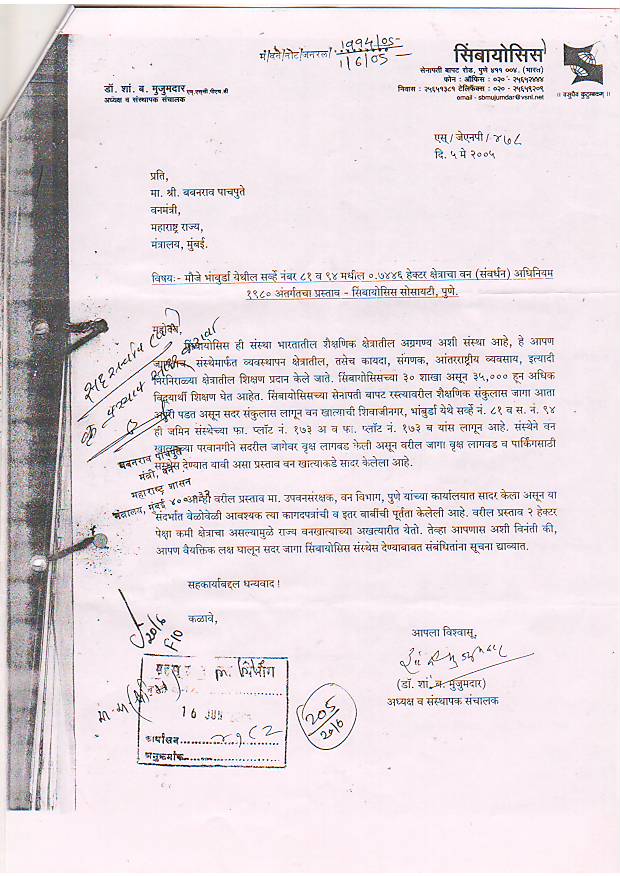 मं/वने/नोट/जनरल/ 1994/05
1/6/05
सिंबायोसिस
सेनापती बापट रोड, पुणे ४११ ००४. (भारत)
फोन : ऑफिस : ०२० - २५६५२४४४
निवास : २५६५१३८१ टेलिफॅक्स : ०२० - २५६५९२०९
email - sbmujumdar@vsnl.net
॥ वसुधैव कुटुम्बकम् ॥
डॉ. शां. ब. मुजुमदार एम.एससी.पीएच.डी
अध्यक्ष व संस्थापक संचालक
एस्/जेएनपी/४७८
दि. ५ मे २००५
प्रति,
मा. श्री. बबनराव पाचपुते
वनमंत्री,
महाराष्ट्र राज्य,
मंत्रालय, मुंबई.
विषय:- मौजे भांबुर्डा येथील सर्व्हे नंबर ८१ व ९४ मधील ०.७४४६ हेक्टर क्षेत्राचा वन (संवर्धन) अधिनियम
१९८० अंतर्गतचा प्रस्ताव - सिंबायोसिस सोसायटी, पुणे.
महोदय,
सिंबायोसिस ही संस्था भारतातील शैक्षणिक क्षेत्रातील अग्रगण्य अशी संस्था आहे, हे आपण
संस्थेमार्फत व्यवस्थापन क्षेत्रातील, तसेच कायदा, संगणक, आंतरराष्ट्रीय व्यवसाय, इत्यादी
निरनिराळ्या क्षेत्रातील शिक्षण प्रदान केले जाते. सिंबायोसिसच्या ३० शाखा असून ३५,००० हून अधिक
विद्यार्थी शिक्षण घेत आहेत. सिंबायोसिसच्या सेनापती बापट रस्त्यावरील शैक्षणिक संकुलास जागा आता
अपुरी पडत असून सदर संकुलास लागून वन खात्याची शिवाजीनगर, भांबुर्डा येथे सर्व्हे नं. ८१ व स. नं. ९४
ही जमिन संस्थेच्या फा. प्लॉट नं. १७३ अ व फा. प्लॉट नं. १७३ ब यांस लागून आहे. संस्थेने वन
खात्याच्या परवानगीने सदरील जागेवर वृक्ष लागवड केली असून वरील जागा वृक्ष लागवड व पार्किंगसाठी
संस्थेस देण्यात यावी असा प्रस्ताव वन खात्याकडे सादर केलेला आहे.
बबनराव पाचपुते
मंत्री, वने
महाराष्ट्र शासन
मंत्रालय, मुंबई ४०००३२
आम्ही वरील प्रस्ताव मा. उपवनसंरक्षक, वन विभाग, पुणे यांच्या कार्यालयात सादर केला असून या
संदर्भात वेळोवेळी आवश्यक त्या कागदपत्रांची व इतर बाबींची पूर्तता केलेली आहे. वरील प्रस्ताव २ हेक्टर
पेक्षा कमी क्षेत्राचा असल्यामुळे राज्य वनखात्याच्या अखत्यारीत येतो. तेव्हा आपणास अशी विनंती की,
आपण वैयक्तिक लक्ष घालून सदर जागा सिंबायोसिस संस्थेस देण्याबाबत संबंधितांना सूचना द्याव्यात.
सहकार्याबद्दल धन्यवाद !
कळावे,
20/6
F10
आपला विश्वासू,
(डॉ. शां. ब. मुजुमदार)
अध्यक्ष व संस्थापक संचालक
16 JUN
कार्यासन
अनुक्रमांक
205
20/6